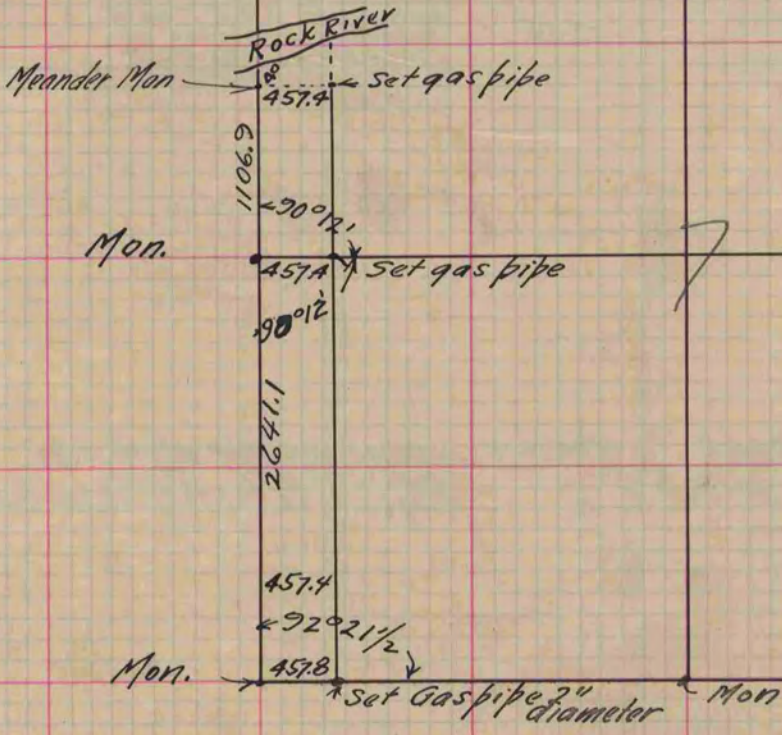 Rock River
Meander Mon
40
457.4
set gas pipe
1106.9
90°12'
Mon.
457.4
Set gas pipe
7
90°12'
2641.1
457.4
92°21½
Mon.
457.8
Set Gas pipe 2" diameter
Mon